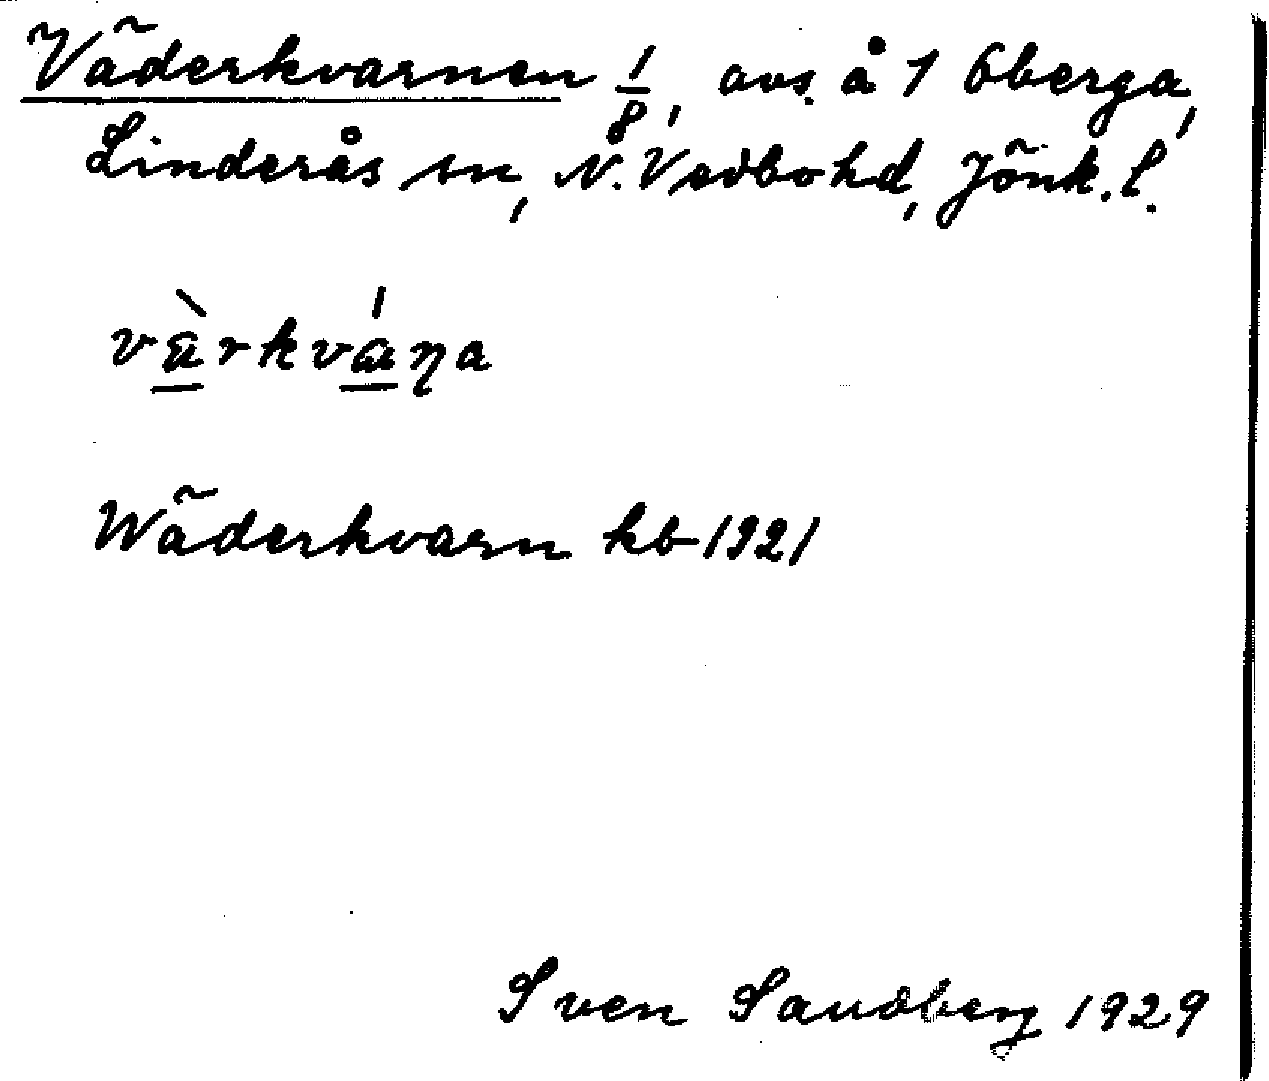 Väderkvarnen 1/8, avs. å 1 Öberga,
Linderås sn, N. Vedbo hd, Jönk. l.
vä̀rkvánạ
Wäderkvarn kb 1921
Sven Sandberg 1929